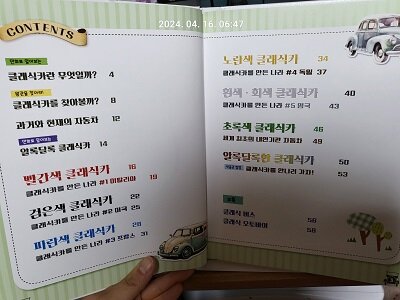 CONTENTS
2024. 04. 16. 06:47
만화로 알아보는
클래식카란 무엇일까? 4
클래식카를 찾아볼까? 8
과거와 현재의 자동차 12
만화로 알아보는
알록달록 클래식카 14
빨간색 클래식카 16
클래식카를 만든 나라 #1 이탈리아 19
검은색 클래식카 22
클래식카를 만든 나라 #2 미국 25
파란색 클래식카 28
클래식카를 만든 나라 #3 프랑스 31
노란색 클래식카 34
클래식카를 만든 나라 #4 독일 37
흰색·회색 클래식카 40
클래식카를 만든 나라 #5 영국 43
초록색 클래식카 46
세계 최초의 내연기관 자동차 49
알록달록한 클래식카 50
클래식카를 만나러 가자! 53
부록
클래식 버스 56
클래식 오토바이 58